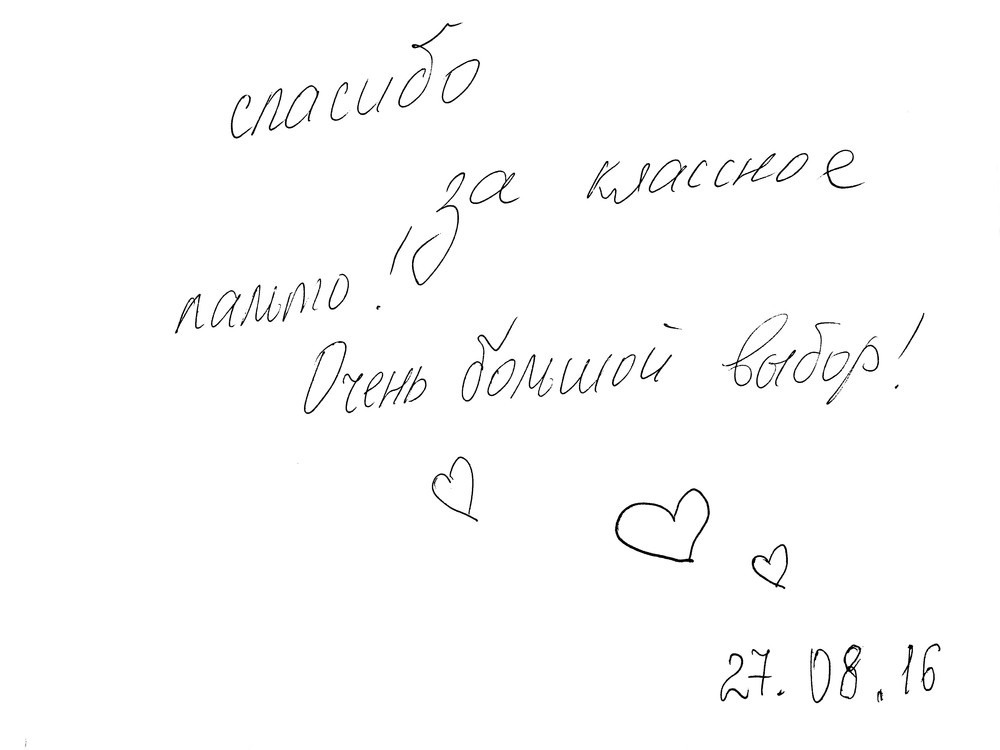 спасибо
за классное
пальто!
Очень большой выбор!
27.08.16